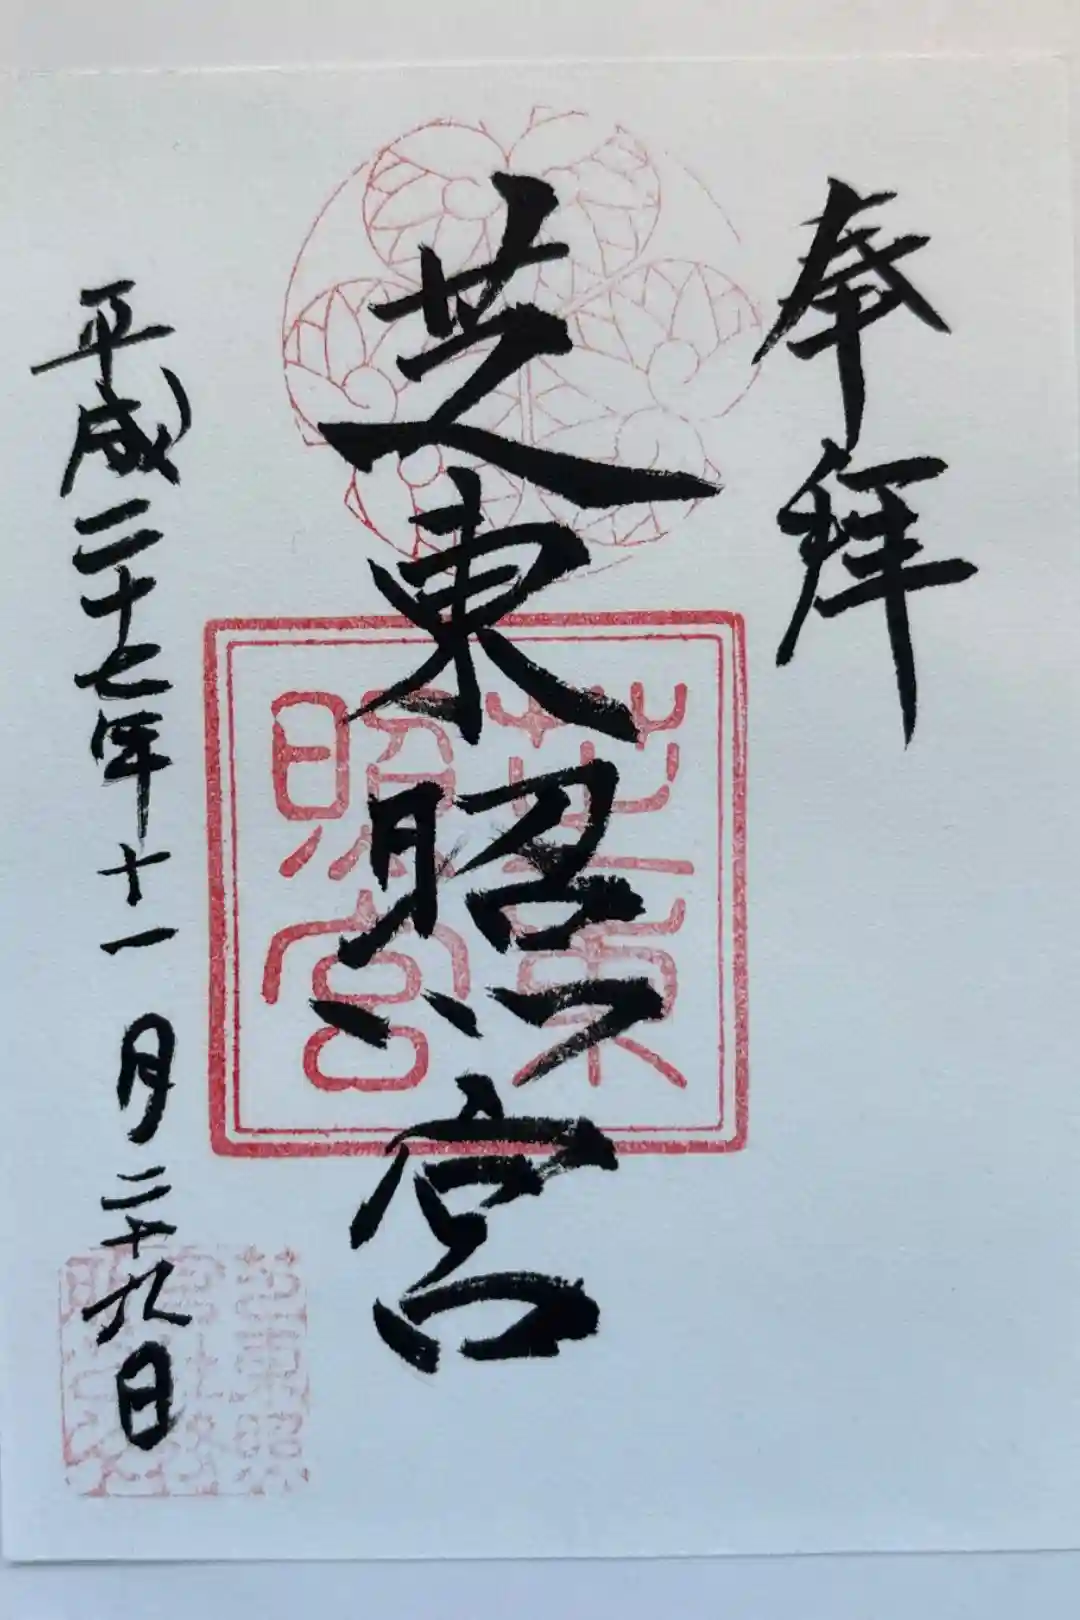 奉拝
芝東照宮
平成二十七年十一月二十九日
芝東
照宮